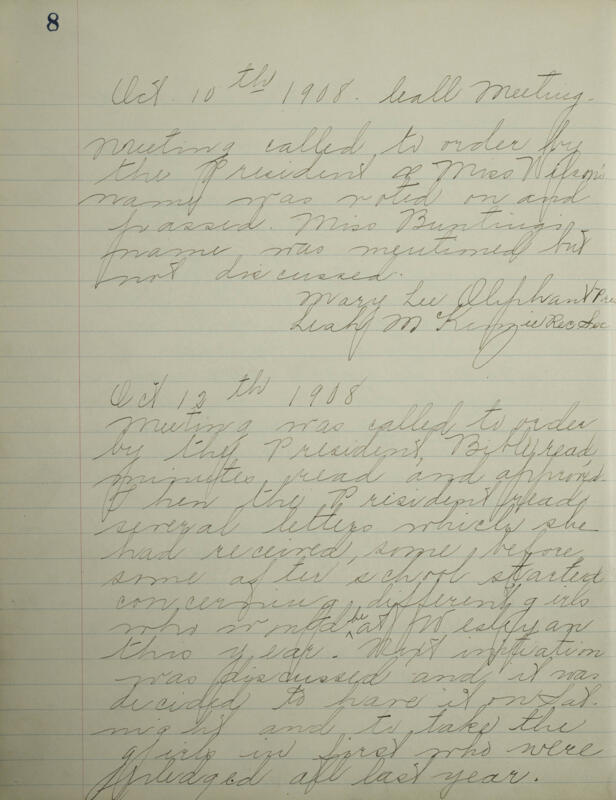 8
Oct. 10th 1908. Call Meeting.
Meeting called to order by
the President & Miss Wilson's
name was voted on and
passed. Miss Buntings
name was mentioned but
not discussed.
Mary Lee Oliphant Pres
Leah McKenzie Rec Sec
Oct 12th 1908
Meeting was called to order
by the President, Bible read,
minutes read and approved.
Then the President read
several letters which she
had received, some before
some after school started
concerning different girls
who would be at Wesleyan
this year. Next initiation
was discussed and it was
decided to have it on Sat.
night and to take the
girls in first who were
pledged all last year.